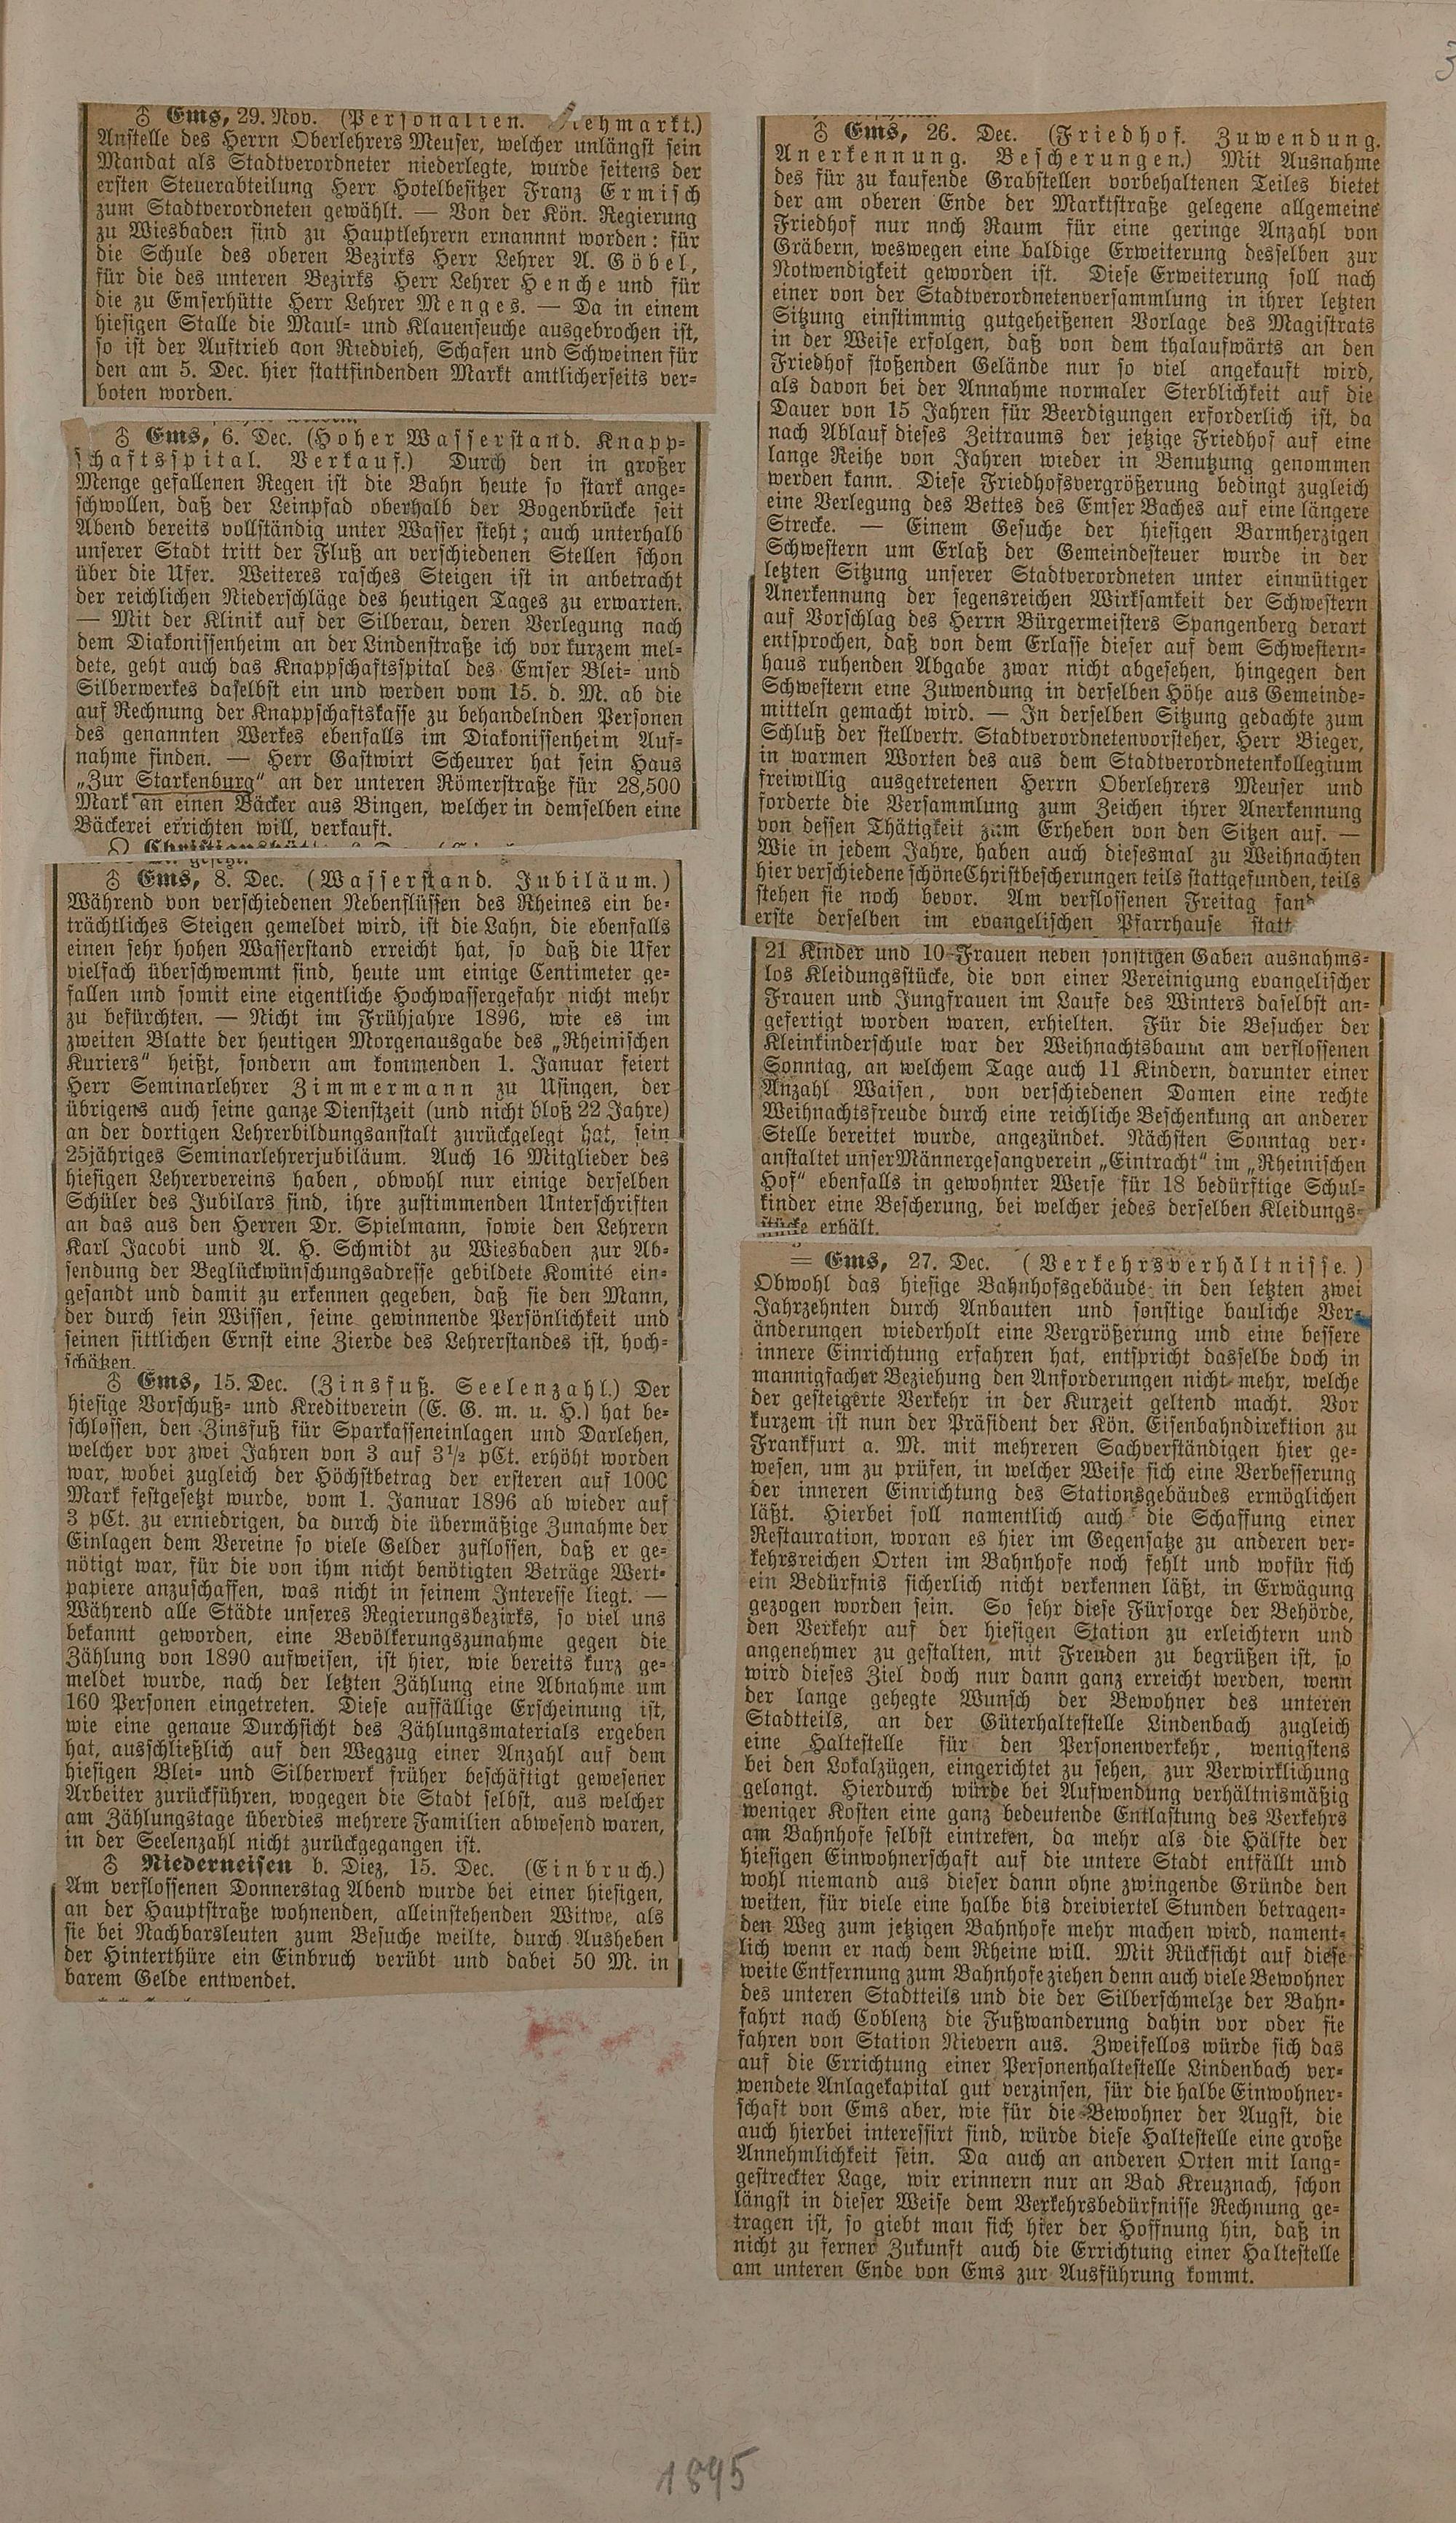 ♁ Ems, 29. Nov. (Personalien. Viehmarkt.)
Anstelle des Herrn Oberlehrers Meuser, welcher unlängst sein
Mandat als Stadtverordneter niederlegte, wurde seitens der
ersten Steuerabteilung Herr Hotelbesitzer Franz Ermisch
zum Stadtverordneten gewählt. — Von der Kön. Regierung
zu Wiesbaden sind zu Hauptlehrern ernannnt worden: für
die Schule des oberen Bezirks Herr Lehrer A. Göbel,
für die des unteren Bezirks Herr Lehrer Henche und für
die zu Emserhütte Herr Lehrer Menges. — Da in einem
hiesigen Stalle die Maul- und Klauenseuche ausgebrochen ist,
so ist der Auftrieb aon Riedvieh, Schafen und Schweinen für
den am 5. Dec. hier stattfindenden Markt amtlicherseits ver-
boten worden.
♁ Ems, 6. Dec. (Hoher Wasserstand. Knapp-
schaftsspital. Verkauf.) Durch den in großer
Menge gefallenen Regen ist die Bahn heute so stark ange-
schwollen, daß der Leinpfad oberhalb der Bogenbrücke seit
Abend bereits vollständig unter Wasser steht; auch unterhalb
unserer Stadt tritt der Fluß an verschiedenen Stellen schon
über die Ufer. Weiteres rasches Steigen ist in anbetracht
der reichlichen Niederschläge des heutigen Tages zu erwarten.
— Mit der Klinik auf der Silberau, deren Verlegung nach
dem Diakonissenheim an der Lindenstraße ich vor kurzem mel-
dete, geht auch das Knappschaftsspital des Emser Blei- und
Silberwerkes daselbst ein und werden vom 15. d. M. ab die
auf Rechnung der Knappschaftskasse zu behandelnden Personen
des genannten Werkes ebenfalls im Diakonissenheim Auf-
nahme finden. — Herr Gastwirt Scheurer hat sein Haus
„Zur Starkenburg“ an der unteren Römerstraße für 28,500
Mark an einen Bäcker aus Bingen, welcher in demselben eine
Bäckerei errichten will, verkauft.
♁ Ems, 8. Dec. (Wasserstand. Jubiläum.)
Während von verschiedenen Nebenflüssen des Rheines ein be-
trächtliches Steigen gemeldet wird, ist die Lahn, die ebenfalls
einen sehr hohen Wasserstand erreicht hat, so daß die Ufer
vielfach überschwemmt sind, heute um einige Centimeter ge-
fallen und somit eine eigentliche Hochwassergefahr nicht mehr
zu befürchten. — Nicht im Frühjahre 1896, wie es im
zweiten Blatte der heutigen Morgenausgabe des „Rheinischen
Kuriers“ heißt, sondern am kommenden 1. Januar feiert
Herr Seminarlehrer Zimmermann zu Usingen, der
übrigens auch seine ganze Dienstzeit (und nicht bloß 22 Jahre)
an der dortigen Lehrerbildungsanstalt zurückgelegt hat, sein
25jähriges Seminarlehrerjubiläum. Auch 16 Mitglieder des
hiesigen Lehrervereins haben, obwohl nur einige derselben
Schüler des Jubilars sind, ihre zustimmenden Unterschriften
an das aus den Herren Dr. Spielmann, sowie den Lehrern
Karl Jacobi und A. H. Schmidt zu Wiesbaden zur Ab-
sendung der Beglückwünschungsadresse gebildete Komité ein-
gesandt und damit zu erkennen gegeben, daß sie den Mann,
der durch sein Wissen, seine gewinnende Persönlichkeit und
seinen sittlichen Ernst eine Zierde des Lehrerstandes ist, hoch-
schätzen.
♁ Ems, 15. Dec. (Zinsfuß. Seelenzahl.) Der
hiesige Vorschuß- und Kreditverein (E. G. m. u. H.) hat be-
schlossen, den Zinsfuß für Sparkasseneinlagen und Darlehen,
welcher vor zwei Jahren von 3 auf 3½ pCt. erhöht worden
war, wobei zugleich der Höchstbetrag der ersteren auf 1000
Mark festgesetzt wurde, vom 1. Januar 1896 ab wieder auf
3 pCt. zu erniedrigen, da durch die übermäßige Zunahme der
Einlagen dem Vereine so viele Gelder zuflossen, daß er ge-
nötigt war, für die von ihm nicht benötigten Beträge Wert-
papiere anzuschaffen, was nicht in seinem Interesse liegt. —
Während alle Städte unseres Regierungsbezirks, so viel uns
bekannt geworden, eine Bevölkerungszunahme gegen die
Zählung von 1890 aufweisen, ist hier, wie bereits kurz ge-
meldet wurde, nach der letzten Zählung eine Abnahme um
160 Personen eingetreten. Diese auffällige Erscheinung ist,
wie eine genaue Durchsicht des Zählungsmaterials ergeben
hat, ausschließlich auf den Wegzug einer Anzahl auf dem
hiesigen Blei- und Silberwerk früher beschäftigt gewesener
Arbeiter zurückführen, wogegen die Stadt selbst, aus welcher
am Zählungstage überdies mehrere Familien abwesend waren,
in der Seelenzahl nicht zurückgegangen ist.
♁ Niederneisen b. Diez, 15. Dec. (Einbruch.)
Am verflossenen Donnerstag Abend wurde bei einer hiesigen,
an der Hauptstraße wohnenden, alleinstehenden Witwe, als
sie bei Nachbarsleuten zum Besuche weilte, durch Ausheben
der Hinterthüre ein Einbruch verübt und dabei 50 M. in
barem Gelde entwendet.
♁ Ems, 26. Dec. (Friedhof. Zuwendung.
Anerkennung. Bescherungen.) Mit Ausnahme
des für zu kaufende Grabstellen vorbehaltenen Teiles bietet
der am oberen Ende der Marktstraße gelegene allgemeine
Friedhof nur noch Raum für eine geringe Anzahl von
Gräbern, weswegen eine baldige Erweiterung desselben zur
Notwendigkeit geworden ist. Diese Erweiterung soll nach
einer von der Stadtverordnetenversammlung in ihrer letzten
Sitzung einstimmig gutgeheißenen Vorlage des Magistrats
in der Weise erfolgen, daß von dem thalaufwärts an den
Friedhof stoßenden Gelände nur so viel angekauft wird,
als davon bei der Annahme normaler Sterblichkeit auf die
Dauer von 15 Jahren für Beerdigungen erforderlich ist, da
nach Ablauf dieses Zeitraums der jetzige Friedhof auf eine
lange Reihe von Jahren wieder in Benutzung genommen
werden kann. Diese Friedhofsvergrößerung bedingt zugleich
eine Verlegung des Bettes des Emser Baches auf eine längere
Strecke. — Einem Gesuche der hiesigen Barmherzigen
Schwestern um Erlaß der Gemeindesteuer wurde in der
letzten Sitzung unserer Stadtverordneten unter einmütiger
Anerkennung der segensreichen Wirksamkeit der Schwestern
auf Vorschlag des Herrn Bürgermeisters Spangenberg derart
entsprochen, daß von dem Erlasse dieser auf dem Schwestern-
haus ruhenden Abgabe zwar nicht abgesehen, hingegen den
Schwestern eine Zuwendung in derselben Höhe aus Gemeinde-
mitteln gemacht wird. — In derselben Sitzung gedachte zum
Schluß der stellvertr. Stadtverordnetenvorsteher, Herr Bieger,
in warmen Worten des aus dem Stadtverordnetenkollegium
freiwillig ausgetretenen Herrn Oberlehrers Meuser und
forderte die Versammlung zum Zeichen ihrer Anerkennung
von dessen Thätigkeit zum Erheben von den Sitzen auf. —
Wie in jedem Jahre, haben auch diesesmal zu Weihnachten
hier verschiedene schöne Christbescherungen teils stattgefunden, teils
stehen sie noch bevor. Am verflossenen Freitag fand
erste derselben im evangelischen Pfarrhause statt
21 Kinder und 10 Frauen neben sonstigen Gaben ausnahms-
los Kleidungsstücke, die von einer Vereinigung evangelischer
Frauen und Jungfrauen im Laufe des Winters daselbst an-
gefertigt worden waren, erhielten. Für die Besucher der
Kleinkinderschule war der Weihnachtsbaum am verflossenen
Sonntag, an welchem Tage auch 11 Kindern, darunter einer
Anzahl Waisen, von verschiedenen Damen eine rechte
Weihnachtsfreude durch eine reichliche Beschenkung an anderer
Stelle bereitet wurde, angezündet. Nächsten Sonntag ver-
anstaltet unser Männergesangverein „Eintracht“ im „Rheinischen
Hof“ ebenfalls in gewohnter Weise für 18 bedürftige Schul-
kinder eine Bescherung, bei welcher jedes derselben Kleidungs-
stücke erhält.
= Ems, 27. Dec. (Verkehrsverhältnisse.)
Obwohl das hiesige Bahnhofsgebäude in den letzten zwei
Jahrzehnten durch Anbauten und sonstige bauliche Ver-
änderungen wiederholt eine Vergrößerung und eine bessere
innere Einrichtung erfahren hat, entspricht dasselbe doch in
mannigfacher Beziehung den Anforderungen nicht mehr, welche
der gesteigerte Verkehr in der Kurzeit geltend macht. Vor
kurzem ist nun der Präsident der Kön. Eisenbahndirektion zu
Frankfurt a. M. mit mehreren Sachverständigen hier ge-
wesen, um zu prüfen, in welcher Weise sich eine Verbesserung
der inneren Einrichtung des Stationsgebäudes ermöglichen
läßt. Hierbei soll namentlich auch die Schaffung einer
Restauration, woran es hier im Gegensatze zu anderen ver-
kehrsreichen Orten im Bahnhofe noch fehlt und wofür sich
ein Bedürfnis sicherlich nicht verkennen läßt, in Erwägung
gezogen worden sein. So sehr diese Fürsorge der Behörde,
den Verkehr auf der hiesigen Station zu erleichtern und
angenehmer zu gestalten, mit Freuden zu begrüßen ist, so
wird dieses Ziel doch nur dann ganz erreicht werden, wenn
der lange gehegte Wunsch der Bewohner des unteren
Stadtteils, an der Güterhaltestelle Lindenbach zugleich
eine Haltestelle für den Personenverkehr, wenigstens
bei den Lokalzügen, eingerichtet zu sehen, zur Verwirklichung
gelangt. Hierdurch würde bei Aufwendung verhältnismäßig
weniger Kosten eine ganz bedeutende Entlastung des Verkehrs
am Bahnhofe selbst eintreten, da mehr als die Hälfte der
hiesigen Einwohnerschaft auf die untere Stadt entfällt und
wohl niemand aus dieser dann ohne zwingende Gründe den
weiten, für viele eine halbe bis dreiviertel Stunden betragen-
den Weg zum jetzigen Bahnhofe mehr machen wird, nament-
lich wenn er nach dem Rheine will. Mit Rücksicht auf diese
weite Entfernung zum Bahnhofe ziehen denn auch viele Bewohner
des unteren Stadtteils und die der Silberschmelze der Bahn-
fahrt nach Coblenz die Fußwanderung dahin vor oder sie
fahren von Station Nievern aus. Zweifellos würde sich das
auf die Errichtung einer Personenhaltestelle Lindenbach ver-
wendete Anlagekapital gut verzinsen, für die halbe Einwohner-
schaft von Ems aber, wie für die Bewohner der Augst, die
auch hierbei interessirt sind, würde diese Haltestelle eine große
Annehmlichkeit sein. Da auch an anderen Orten mit lang-
gestreckter Lage, wir erinnern nur an Bad Kreuznach, schon
längst in dieser Weise dem Verkehrsbedürfnisse Rechnung ge-
tragen ist, so giebt man sich hier der Hoffnung hin, daß in
nicht zu ferner Zukunft auch die Errichtung einer Haltestelle
am unteren Ende von Ems zur Ausführung kommt.
1895